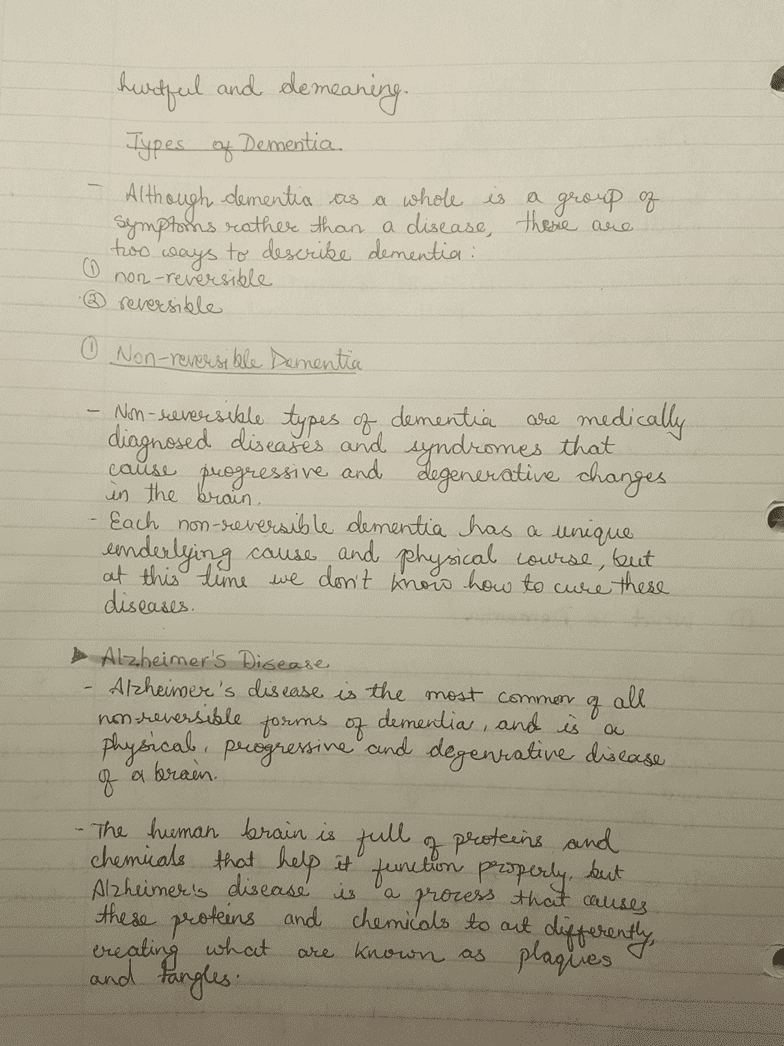 hurtful and demeaning.
Types of Dementia
- Although dementia as a whole is a group of
symptoms rather than a disease, there are
two ways to describe dementia:
① non-reversible
② reversible
① Non-reversible Dementia
- Non-reversible types of dementia are medically
diagnosed diseases and syndromes that
cause progressive and degenerative changes
in the brain.
- Each non-reversible dementia has a unique
underlying cause and physical course, but
at this time we don't know how to cure these
diseases.
➤ Alzheimer's Disease
- Alzheimer's disease is the most common of all
non-reversible forms of dementia, and is a
physical, progressive and degenrative disease
of a brain.
- The human brain is full of proteins and
chemicals that help it function properly, but
Alzheimer's disease is a process that causes
these proteins and chemicals to act differently,
creating what are known as plaques
and tangles.